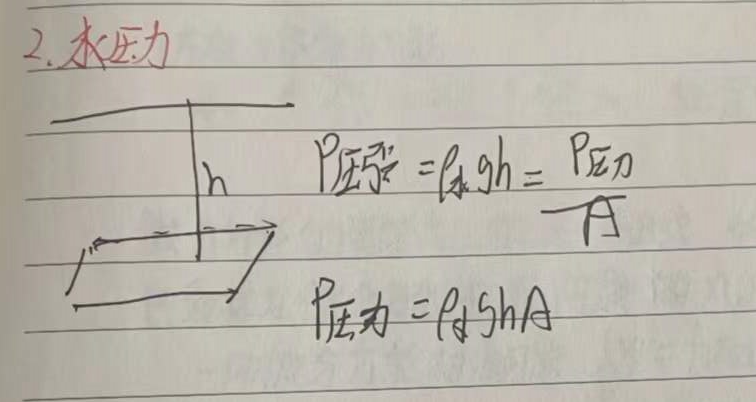 2.水压力
h
P压强=ρ水gh=P压力/A
P压力=ρ水ghA